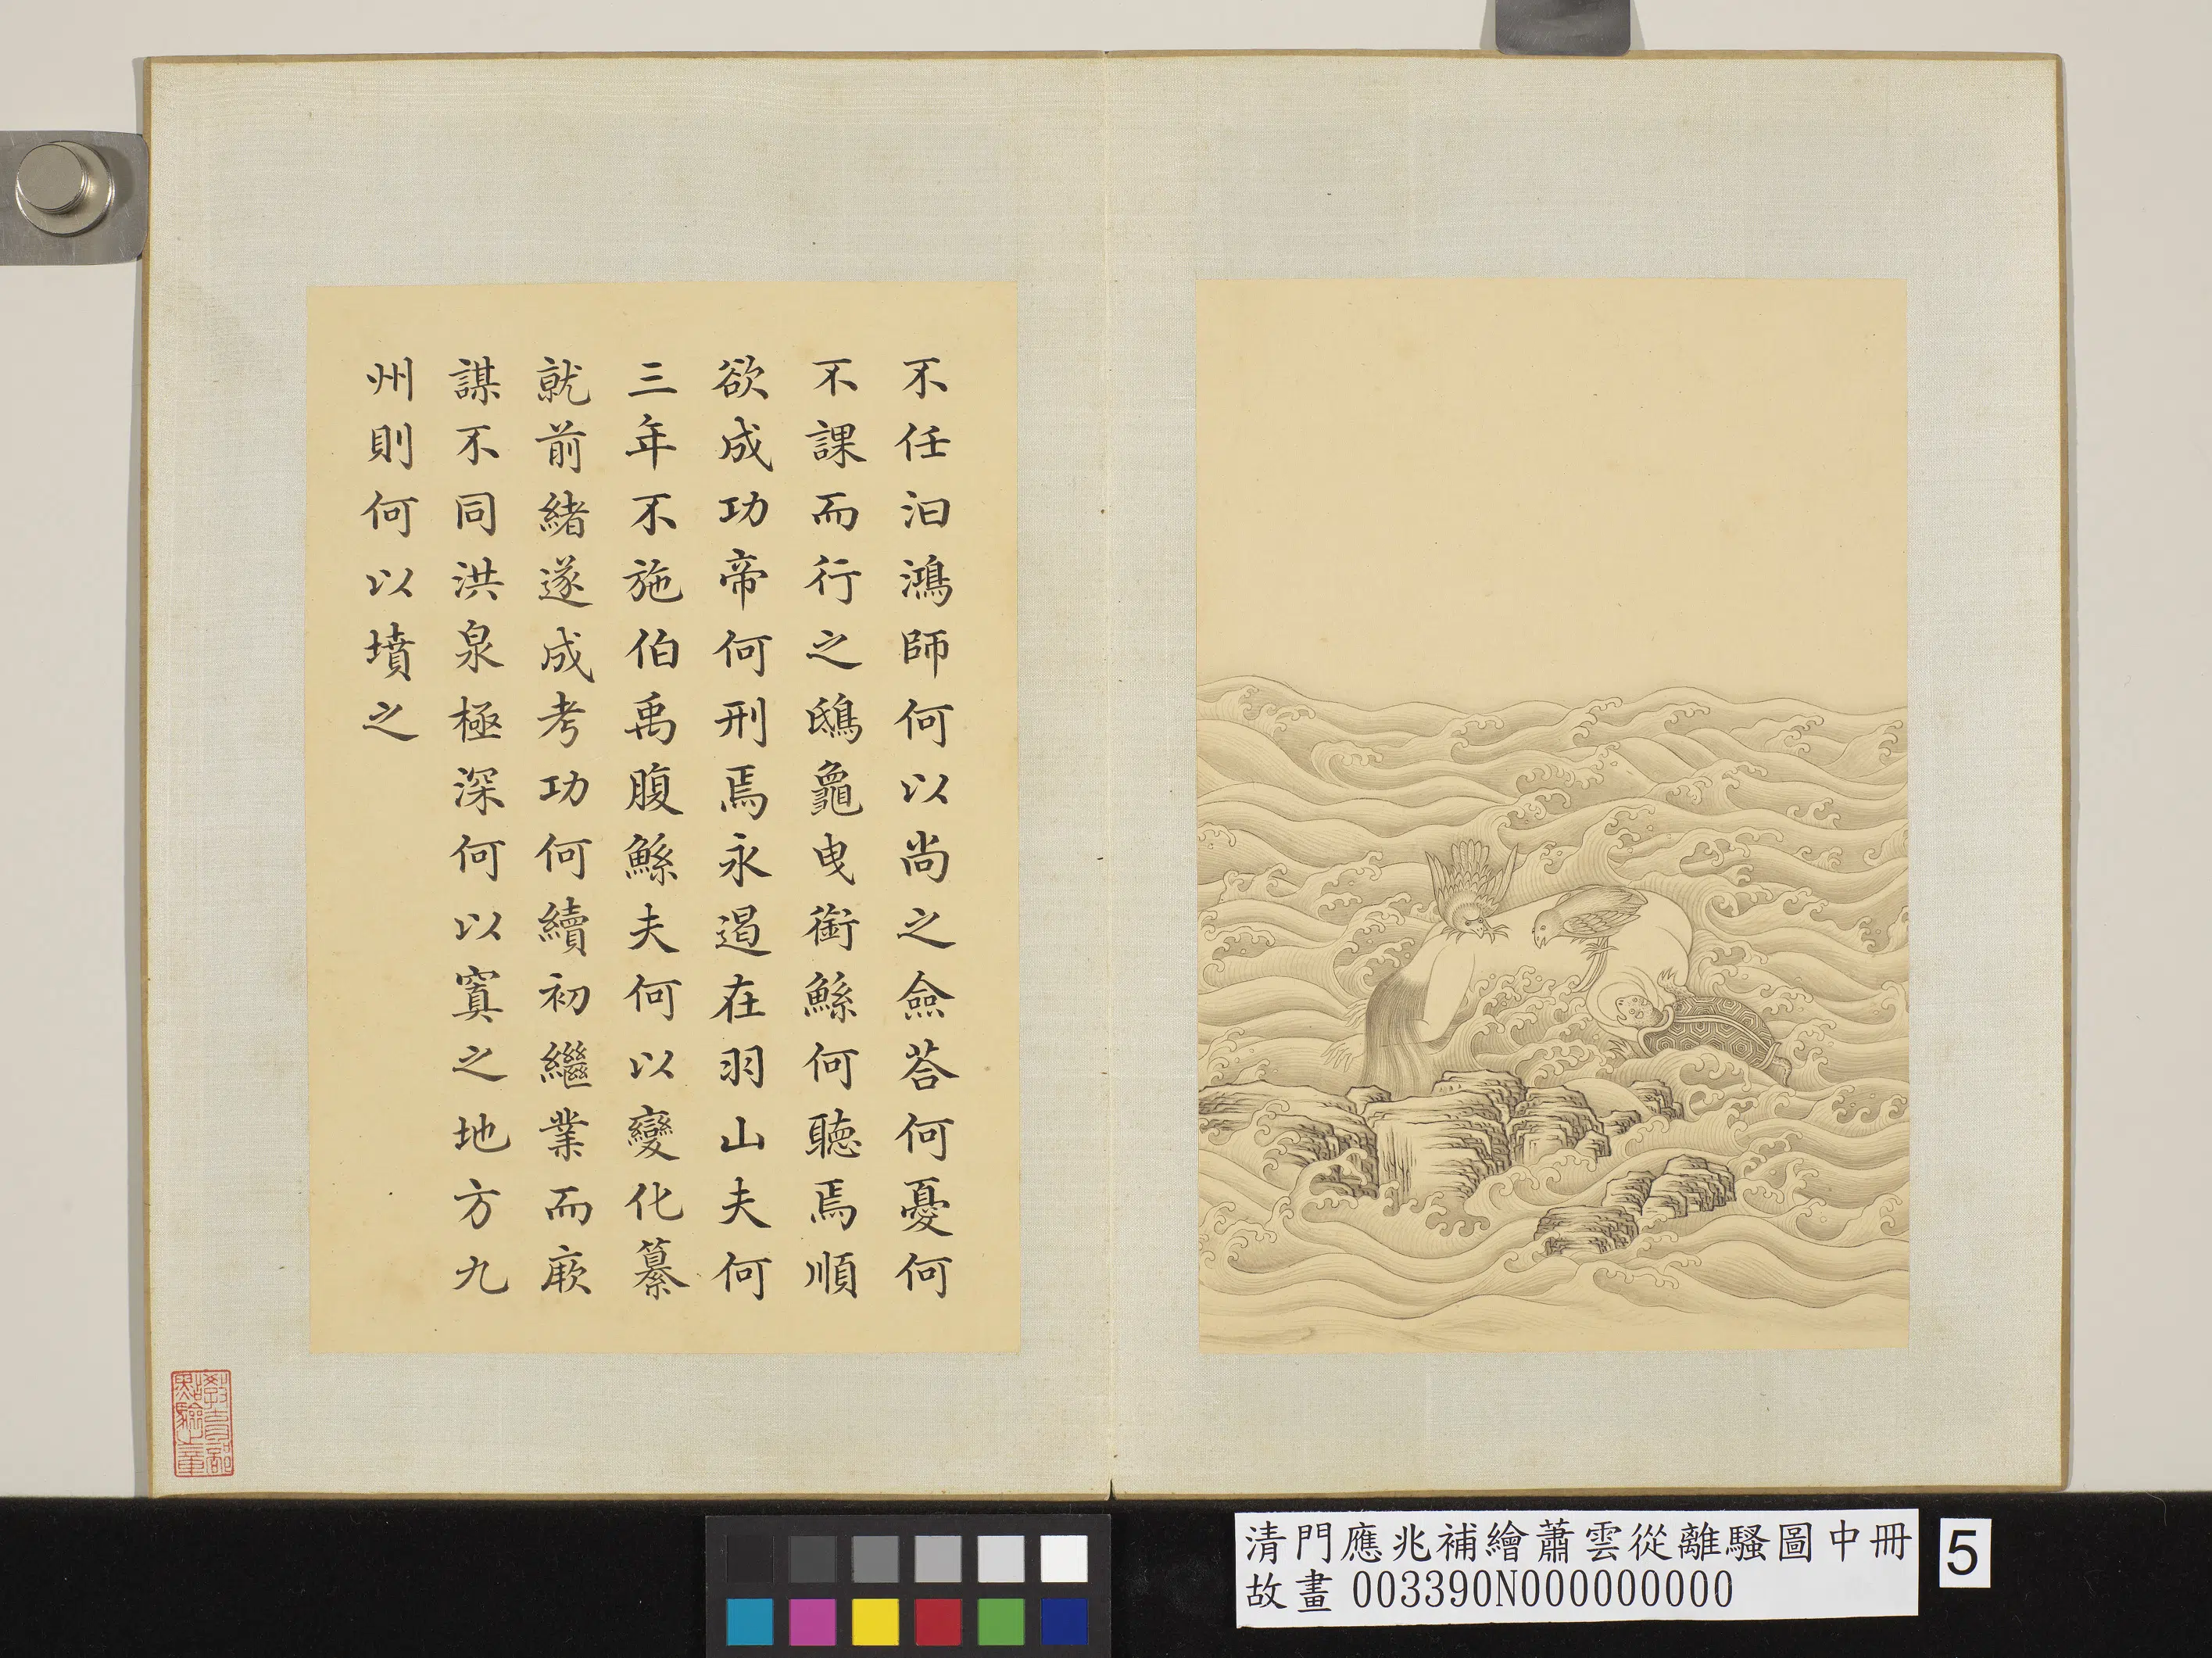 不任汩鴻師何以尚之僉荅何憂何
不課而行之鴟龜曳銜鯀何聽焉順
欲成功帝何刑焉永遏在羽山夫何
三年不施伯禹腹鯀夫何以變化纂
就前緒遂成考功何續初繼業而厥
謀不同洪泉極深何以窴之地方九
州則何以墳之
教育部點驗之章
清門應兆補繪蕭雲從離騷圖中冊
故畫 003390N000000000
5